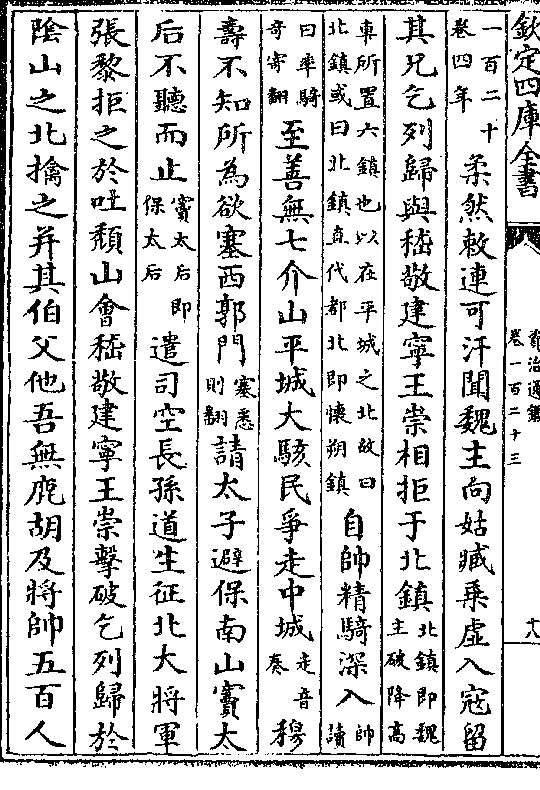 欽定四庫全書
資治通鑑
卷一百二十三
十八
一百二十
卷四年
柔然敕連可汗聞魏主向姑臧乗虛入寇留
其兄乞列歸與嵇敬建寧王崇相拒于北鎮
北鎮即魏
主破降高
車所置六鎮也以在平城之北故曰
北鎮或曰北鎮直代都北即懐朔鎮
自帥精騎深入
帥
讀
曰率騎
竒寄翻
至善無七介山平城大駭民爭走中城
走音
奏
穆
壽不知所為欲塞西郭門
塞悉
則翻
請太子避保南山竇太
后不聽而止
竇太后即
保太后
遣司空長孫道生征北大將軍
張黎拒之於吐頽山會嵇敬建寧王崇擊破乞列歸於
隂山之北擒之并其伯父他吾無鹿胡及將帥五百人